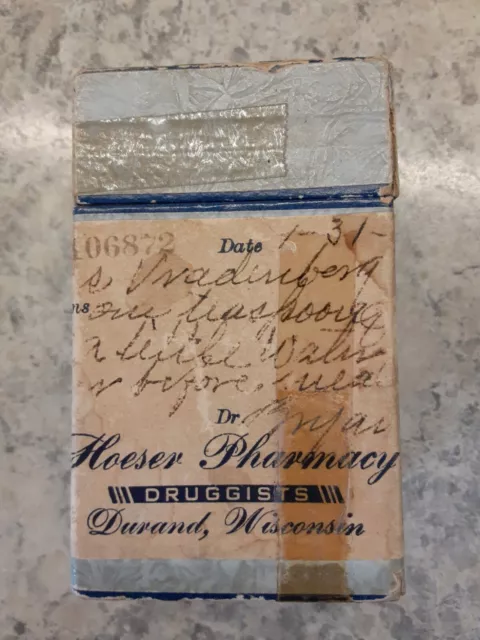 106872 Date 1-31-
s. Vradenberg
ns one teaspoon
a little water
before mea
Dr. Bryan
Hoeser Pharmacy
DRUGGISTS
Durand, Wisconsin